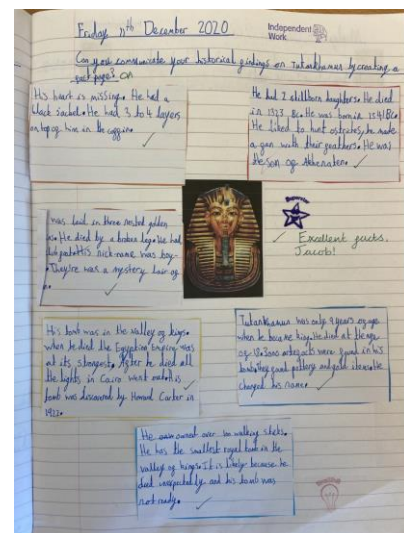 Friday 11th December 2020
Independent
Work
Can you communicate your historical findings on Tutankhamun by creating a
fact page? OA
His heart is missing. He had a
black sacked. He had 3 to 4 layers
on top of him in the coggin.
He had 2 stillborn daughters. He died
in 1323 Bc. He was born in 1341 Bc.
He liked to hunt ostreches, he made
a gan with their geathers. He was
the son of Akhenaten.
was laid in three nested golden
He died by a broken leg. He had
His nick-name was boy-
They're was a mystery hair of
Superstar
Excellent facts,
Jacob!
His tomb was in the valley of kings.
when he died the Egyptian empire was
at its strongest. After he died all
the lights in Cairo went out. His
tomb was discovered by Howard Carter in
1922.
Tutankhamun was only 9 years of age
when he became king. He died at the age
of 18. 3000 artefacts were found in his
tomb, they found pottery and gold items. He
changed his name.
He owned over 100 walking sticks.
He has the smallest royal tomb in the
valley of kings. It is likely because he
died unexpectedly and his tomb was
not ready.